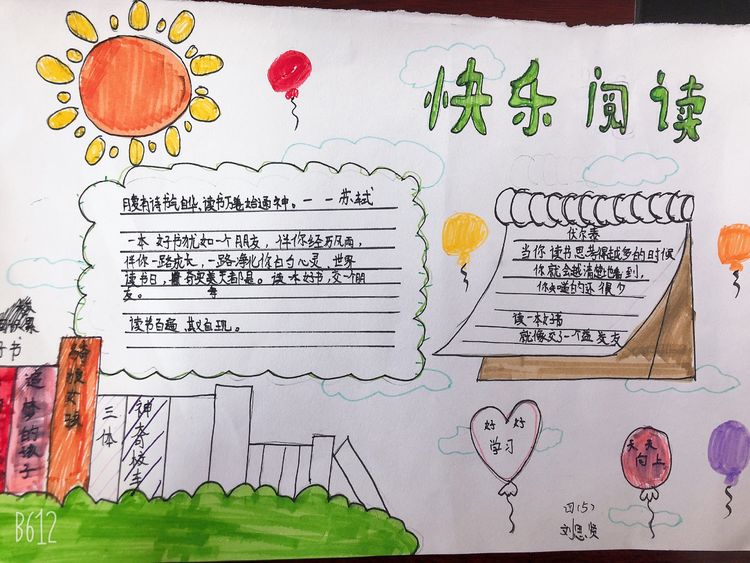 快乐阅读
腹有诗书气自华、读书万卷始通神。——苏轼
一本好书犹如一个朋友，伴你经历风雨，
伴你一路成长，一路净化你的心灵、世界
读书日，
读一本好书，交一个朋
友。
读书百遍，其义自现。
伏尔泰
当你读书思考得越多的时候
你就会越清楚地看到，
你知道的还很少
读一本好书
就像交了一个益友
好书
追梦的孩子
三体
神奇校车
好好
学习
天天
向上
四(5)
刘恩贤
B612